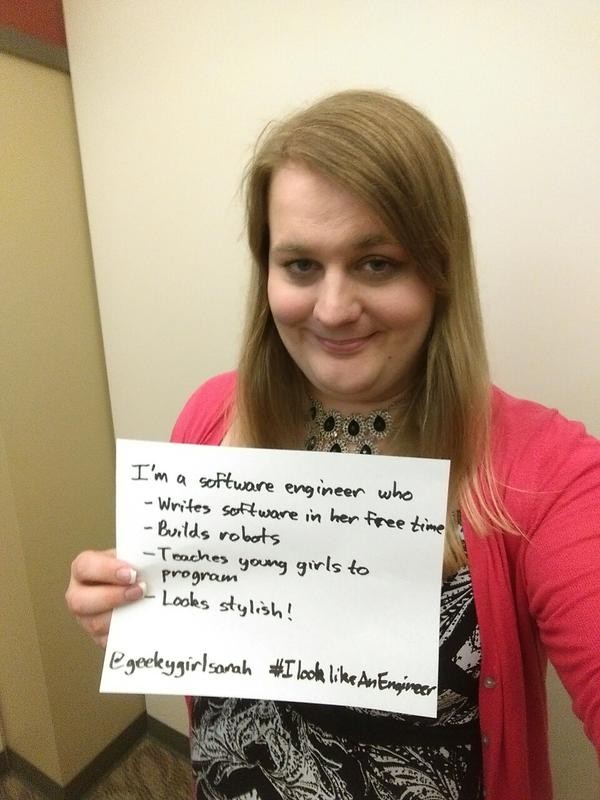 I'm a software engineer who
- Writes software in her free time
- Builds robots
- Teaches young girls to
program
- Looks stylish!
@geekygirlsarah #IlookLikeAnEngineer